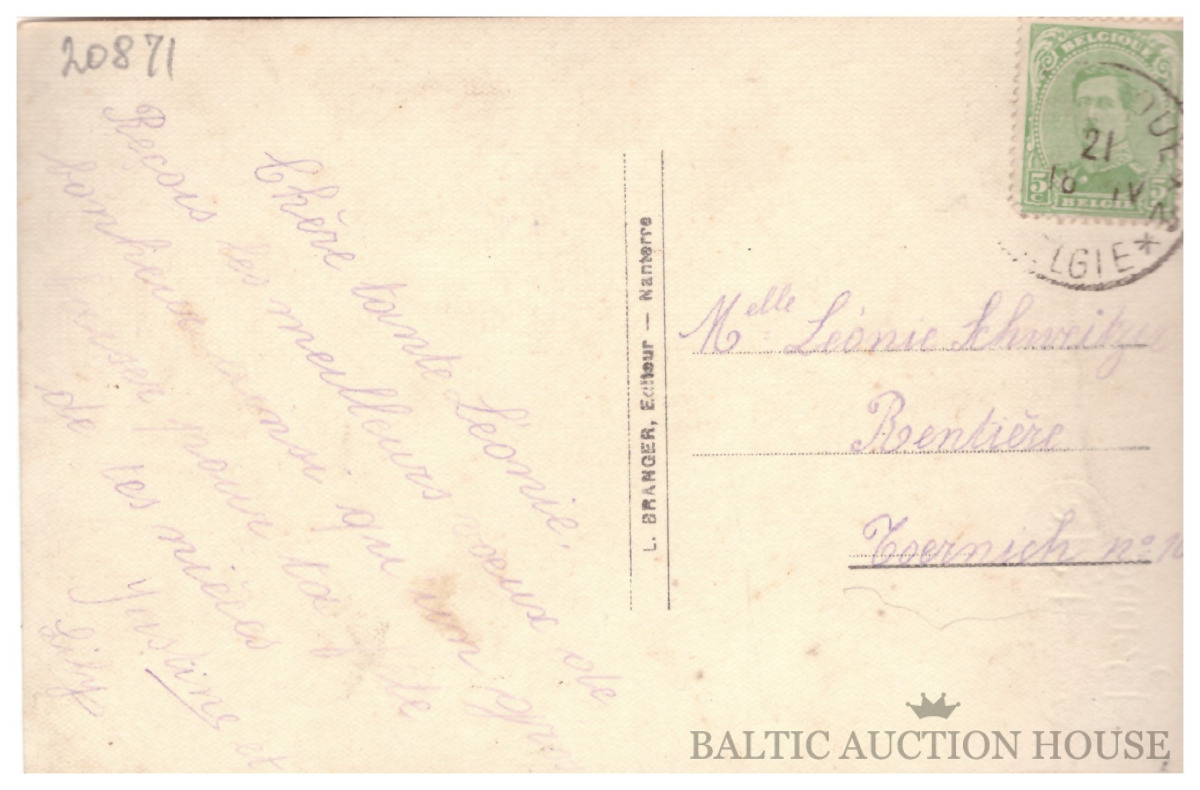 20871
Chère tante Léonie,
Reçois les meilleurs vœux de
bonheur ainsi qu'un gros
baiser pour ta fête
de tes nièces
Justine et
Lily
L. BRANGER, Editeur — Nanterre
BELGIQUE
5c 5c
BELGIE
21
18 IV
LGIE *
Melle Léonie Schweitzer
Rentière
BALTIC AUCTION HOUSE